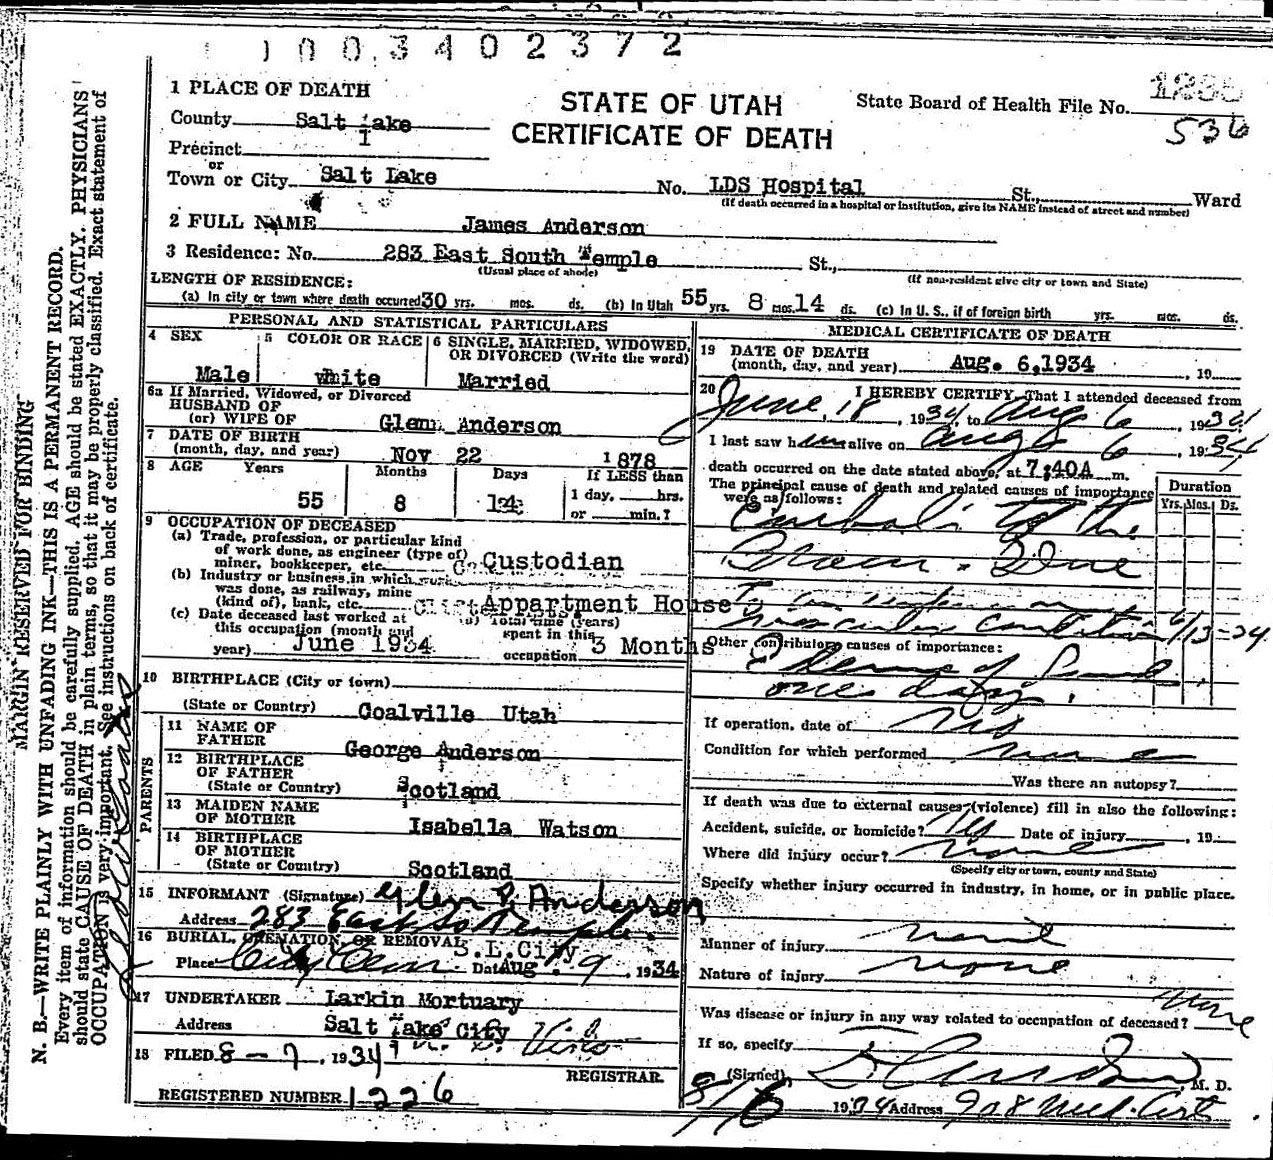 1003402372
1 PLACE OF DEATH
STATE OF UTAH
CERTIFICATE OF DEATH
State Board of Health File No.
536
County Salt Lake
Precinct 1
or
Town or City Salt Lake No. LDS Hospital St., Ward
(If death occurred in a hospital or institution, give its NAME instead of street and number)
2 FULL NAME James Anderson
3 Residence: No. 283 East South Temple St.,
(Usual place of abode) (If non-resident give city or town and State)
LENGTH OF RESIDENCE:
(a) In city or town where death occurred 30 yrs. mos. ds. (b) In Utah 55 yrs. 8 mos. 14 ds. (c) In U. S., if of foreign birth yrs. mos. ds.
PERSONAL AND STATISTICAL PARTICULARS
4 SEX 5 COLOR OR RACE 6 SINGLE, MARRIED, WIDOWED,
OR DIVORCED (Write the word)
Male White Married
6a If Married, Widowed, or Divorced
HUSBAND OF
(or) WIFE OF Glenn Anderson
7 DATE OF BIRTH
(month, day, and year) Nov 22 1878
8 AGE Years Months Days If LESS than
55 8 14 1 day, hrs.
or min.?
9 OCCUPATION OF DECEASED
(a) Trade, profession, or particular kind
of work done, as engineer (type of)
miner, bookkeeper, etc. Custodian
(b) Industry or business in which work
was done, as railway, mine
(kind of), bank, etc. Appartment House
(c) Date deceased last worked at (d) Total time (years)
this occupation (month and spent in this
year) June 1934 occupation 3 Months
10 BIRTHPLACE (City or town)
(State or Country) Coalville Utah
PARENTS
11 NAME OF
FATHER George Anderson
12 BIRTHPLACE
OF FATHER
(State or Country) Scotland
13 MAIDEN NAME
OF MOTHER Isabella Watson
14 BIRTHPLACE
OF MOTHER
(State or Country) Scotland
15 INFORMANT (Signature) Glen P. Anderson
Address 283 East So Temple.
16 BURIAL, CREMATION, OR REMOVAL S.L.City
Place City Cem. Date Aug 9, 1934
17 UNDERTAKER Larkin Mortuary
Address Salt Lake City
18 FILED 8-7, 1934
REGISTRAR
REGISTERED NUMBER 1226
MEDICAL CERTIFICATE OF DEATH
19 DATE OF DEATH
(month, day, and year) Aug. 6,1934, 19
20 I HEREBY CERTIFY, That I attended deceased from
June 18, 1934, to Aug 6, 1934
I last saw him alive on Aug 6, 1934
death occurred on the date stated above, at 7:40A m.
The principal cause of death and related causes of importance
were as follows:
Duration
Yrs. Mos. Ds.
Emboli to the
Brain. Due
To
condition 6/13-34
Other contributory causes of importance:
Edema of
ones days.
If operation, date of No
Condition for which performed none
Was there an autopsy?
If death was due to external causes (violence) fill in also the following:
Accident, suicide, or homicide? Date of injury, 19
Where did injury occur? none
(Specify city or town, county and State)
Specify whether injury occurred in industry, in home, or in public place.
none
Manner of injury none
Nature of injury none
Was disease or injury in any way related to occupation of deceased? none
If so, specify
(Signed), M. D.
8/6 1934 Address 908 Med. Arts
MARGIN RESERVED FOR BINDING
N. B.—WRITE PLAINLY WITH UNFADING INK—THIS IS A PERMANENT RECORD.
Every item of information should be carefully supplied. AGE should be stated EXACTLY. PHYSICIANS
should state CAUSE OF DEATH in plain terms, so that it may be properly classified. Exact statement of
OCCUPATION is very important. See instructions on back of certificate.